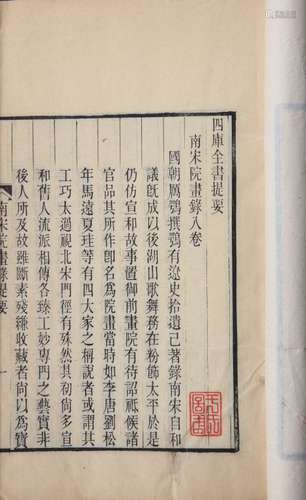 四庫全書提要
南宋院畫錄八卷
國朝厲鶚撰鶚有遼史拾遺已著錄南宋自和
議旣成以後湖山歌舞務在粉飾太平於是
仍仿宣和故事置御前畫院有待詔祗候諸
官品其所作卽名爲院畫當時如李唐劉松
年馬遠夏珪等有四大家之稱說者或謂其
工巧太過視北宋門徑有殊然其初尙多宣
和舊人流派相傳各臻工妙專門之藝實非
後人所及故雖斷素殘縑收藏者尙以爲寶
南宋院畫錄提要
一